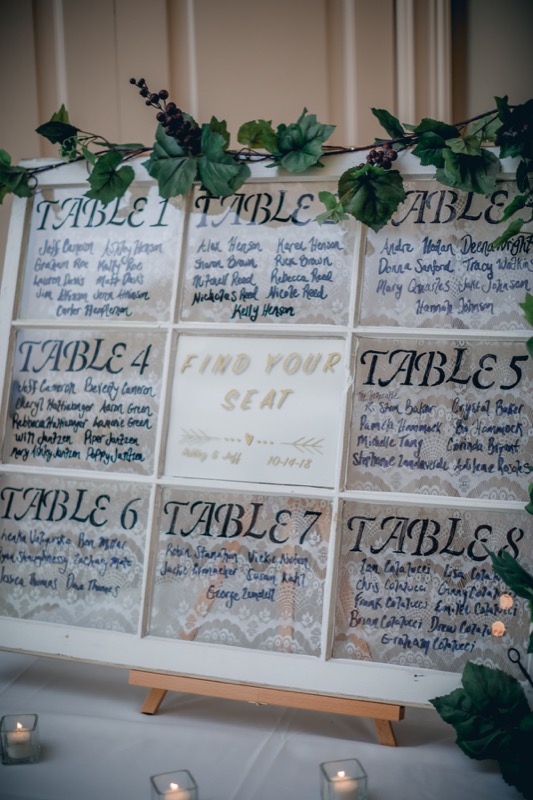 TABLE 1
Jeff Cameron Ashley Henson
Graham Roe Molly Roe
Lauren Davis Matt Davis
Jim Atkinson Jena Atkinson
Carter Hampleman
TABLE 2
Alex Henson Karen Henson
Sharon Brown Rick Brown
Mitchell Reed Rebecca Reed
Nicholas Reed Nicole Reed
Kelly Henson
TABLE
Andre Hogan Deena Wright
Donna Sanford Tracy Watkins
Mary Quarles Jake Johnson
Hannah Johnson
TABLE 4
Jeff Cameron Beverly Cameron
Cheryl Hattabaugh Aaron Green
Rebecca Lannie Green
Will Jantzen Piper Jantzen
Mary Ashley Jantzen Poppy Jantzen
FIND YOUR
SEAT
Ashley & Jeff 10-14-18
TABLE 5
The Honorable
R. Stan Baker Crystal Baker
Pamela Hammock Bo Hammock
Michelle Tang Corinda Bryant
Stephanie Landaverde Rosales
TABLE 6
Ben
Shaughnessy Zachary
Jessica Thomas Dave Thomas
TABLE 7
Robin Vickie
Jackie Susan Kahl
George
TABLE 8
Ian Colatucci Lisa Colatucci
Chris Colatucci Ginny Colatucci
Frank Colatucci Emilee Colatucci
Brian Colatucci Drew Colatucci
Graham Colatucci